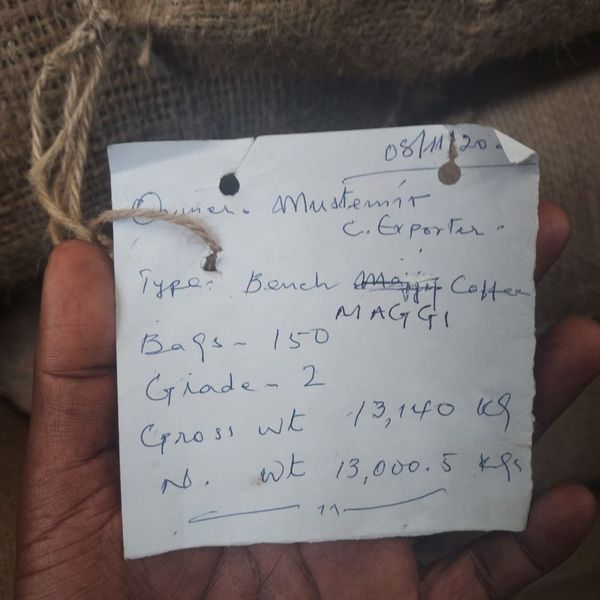 08/11/20
Owner. Mustemir
C. Exporter.
Type: Bench Coffee
MAGGI
Bags - 150
Grade - 2
Gross wt 13,140 Kg
N. wt 13,000.5 Kgs